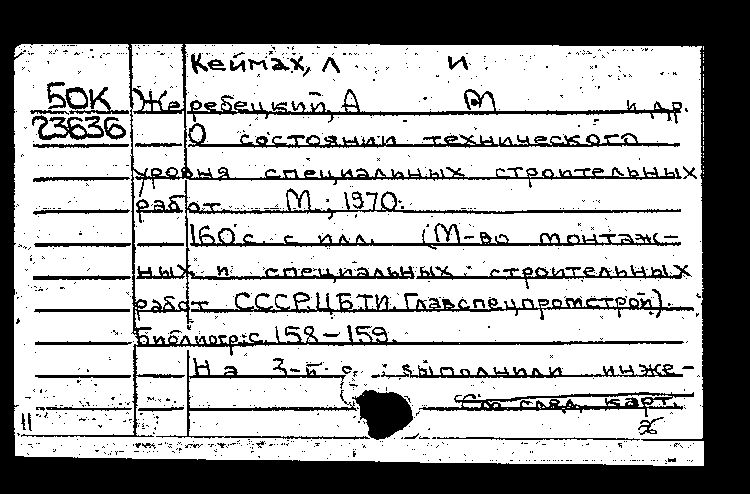 Кеймах, Л И
БОК Жеребецкий, А М и др.
23636 О состоянии технического
уровня специальных строительных
работ. М.; 1970.
160 с. с илл. (М-во монтаж-
ных и специальных строительных
работ СССР. ЦБТИ. Главспецпромстрой).
Библиогр: с. 158-159.
На 3-й с.: выполнили инже-
См след. карт.
11